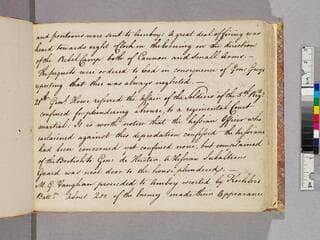 and pontoons were sent to Amboy. A great deal of firing was
heard towards eight o'clock in the Evening in the direction
of the Rebel Camp both of Cannon and Small Arms. —
The piquets were ordered to load in consequence of Genl. Grey's
reporting that this was always neglected. —
28th. Genl. Howe referred the affair of the Soldiers of the 5th. Regt.
confined for plundering a house, to a regimental Court
martial. It is worth notice that the hessian Officer who
exclaimed against this depredation confessed the hessians
had been concerned yet confined none, but complained
of the British to Genl. de Heister. A Hessian Subaltern's
Guard was next door to the house plundered.
M. G. Vaughan proceeded to Amboy escorted by Koehler's
Battn. about 200 of the Enemy made their Appearance